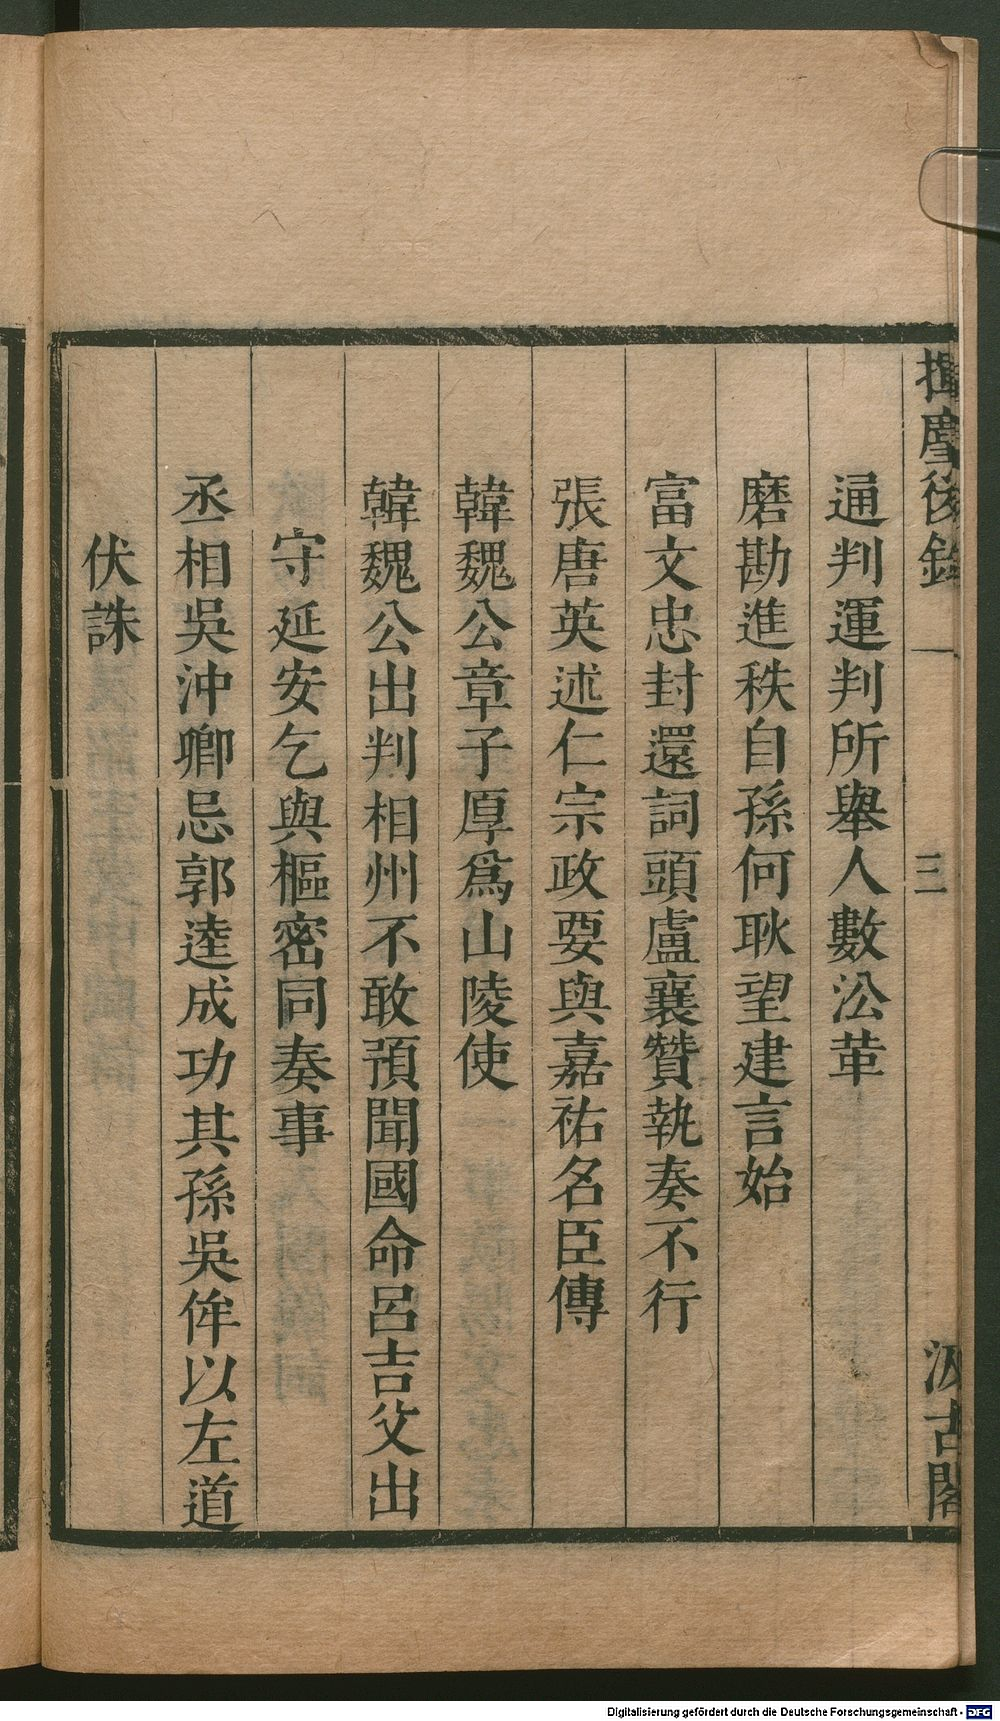 揮麈後錄 一 三 汲古閣
通判運判所舉人數㳂革
磨勘進秩自孫何耿望建言始
富文忠封還詞頭盧襄贊執奏不行
張唐英述仁宗政要與嘉祐名臣傳
韓魏公章子厚爲山陵使
韓魏公出判相州不敢預聞國命呂吉父出
守延安乞與樞密同奏事
丞相吳沖卿忌郭逵成功其孫吳侔以左道
伏誅
Digitalisierung gefördert durch die Deutsche Forschungsgemeinschaft - DFG